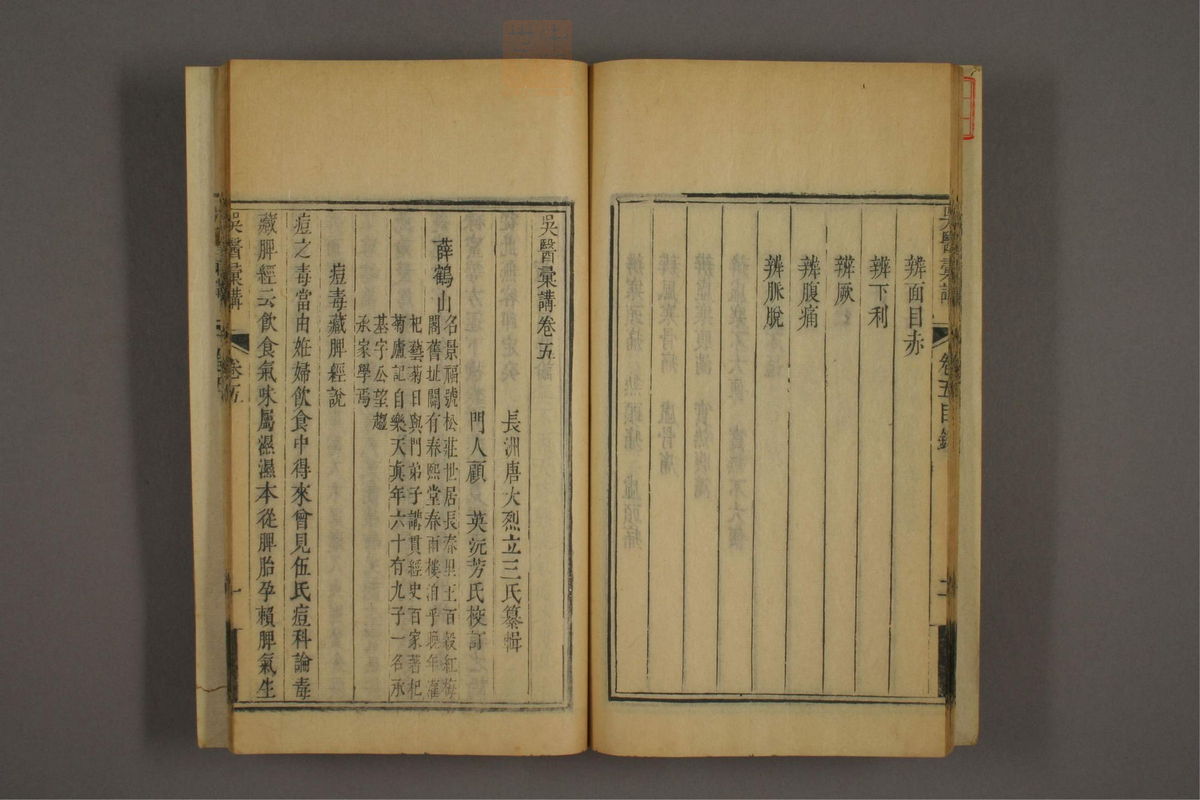 辨面目赤
辨下利
辨厥
辨腹痛
辨脈脫
吳醫彙講
卷五目錄
二
吳醫彙講卷五
長洲唐大烈立三氏纂輯
門人顧 英沅芳氏校訂
薛鶴山
名景福號松莊世居長春里王百穀紅梅
閣舊址闢有春熙堂春雨樓洎乎晚年灌
杞藝菊日與門弟子講貫經史百家著杞
菊廬記自樂天眞年六十有九子一名承
基字公望趨
承家學焉
痘毒藏脾經說
痘之毒當由姙婦飲食中得來曾見伍氏痘科論毒
藏脾經云飲食氣味屬濕濕本從脾胎孕賴脾氣生
吳醫彙講
卷五
一